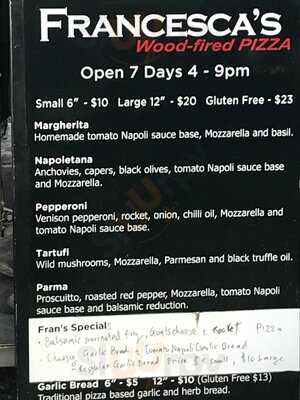 FRANCESCA'S
Wood-fired PIZZA
Open 7 Days 4 - 9pm
Small 6" - $10 Large 12" - $20 Gluten Free - $23
Margherita
Homemade tomato Napoli sauce base, Mozzarella and basil.
Napoletana
Anchovies, capers, black olives, tomato Napoli sauce base
and Mozzarella.
Pepperoni
Venison pepperoni, rocket, onion, chilli oil, Mozzarella and
tomato Napoli sauce base.
Tartufi
Wild mushrooms, Mozzarella, Parmesan and black truffle oil.
Parma
Proscuitto, roasted red pepper, Mozzarella, tomato Napoli
sauce base and balsamic reduction.
Fran's Specials
- Balsamic marinated fig, Goatscheese & Rocket Pizza
- Cheesy Garlic Bread & Tomato Napoli Garlic Bread
Regular Garlic Bread Price small, $ Large
Garlic Bread 6" - $5 12" - $10 (Gluten Free $13)
Traditional pizza based garlic and herb bread.